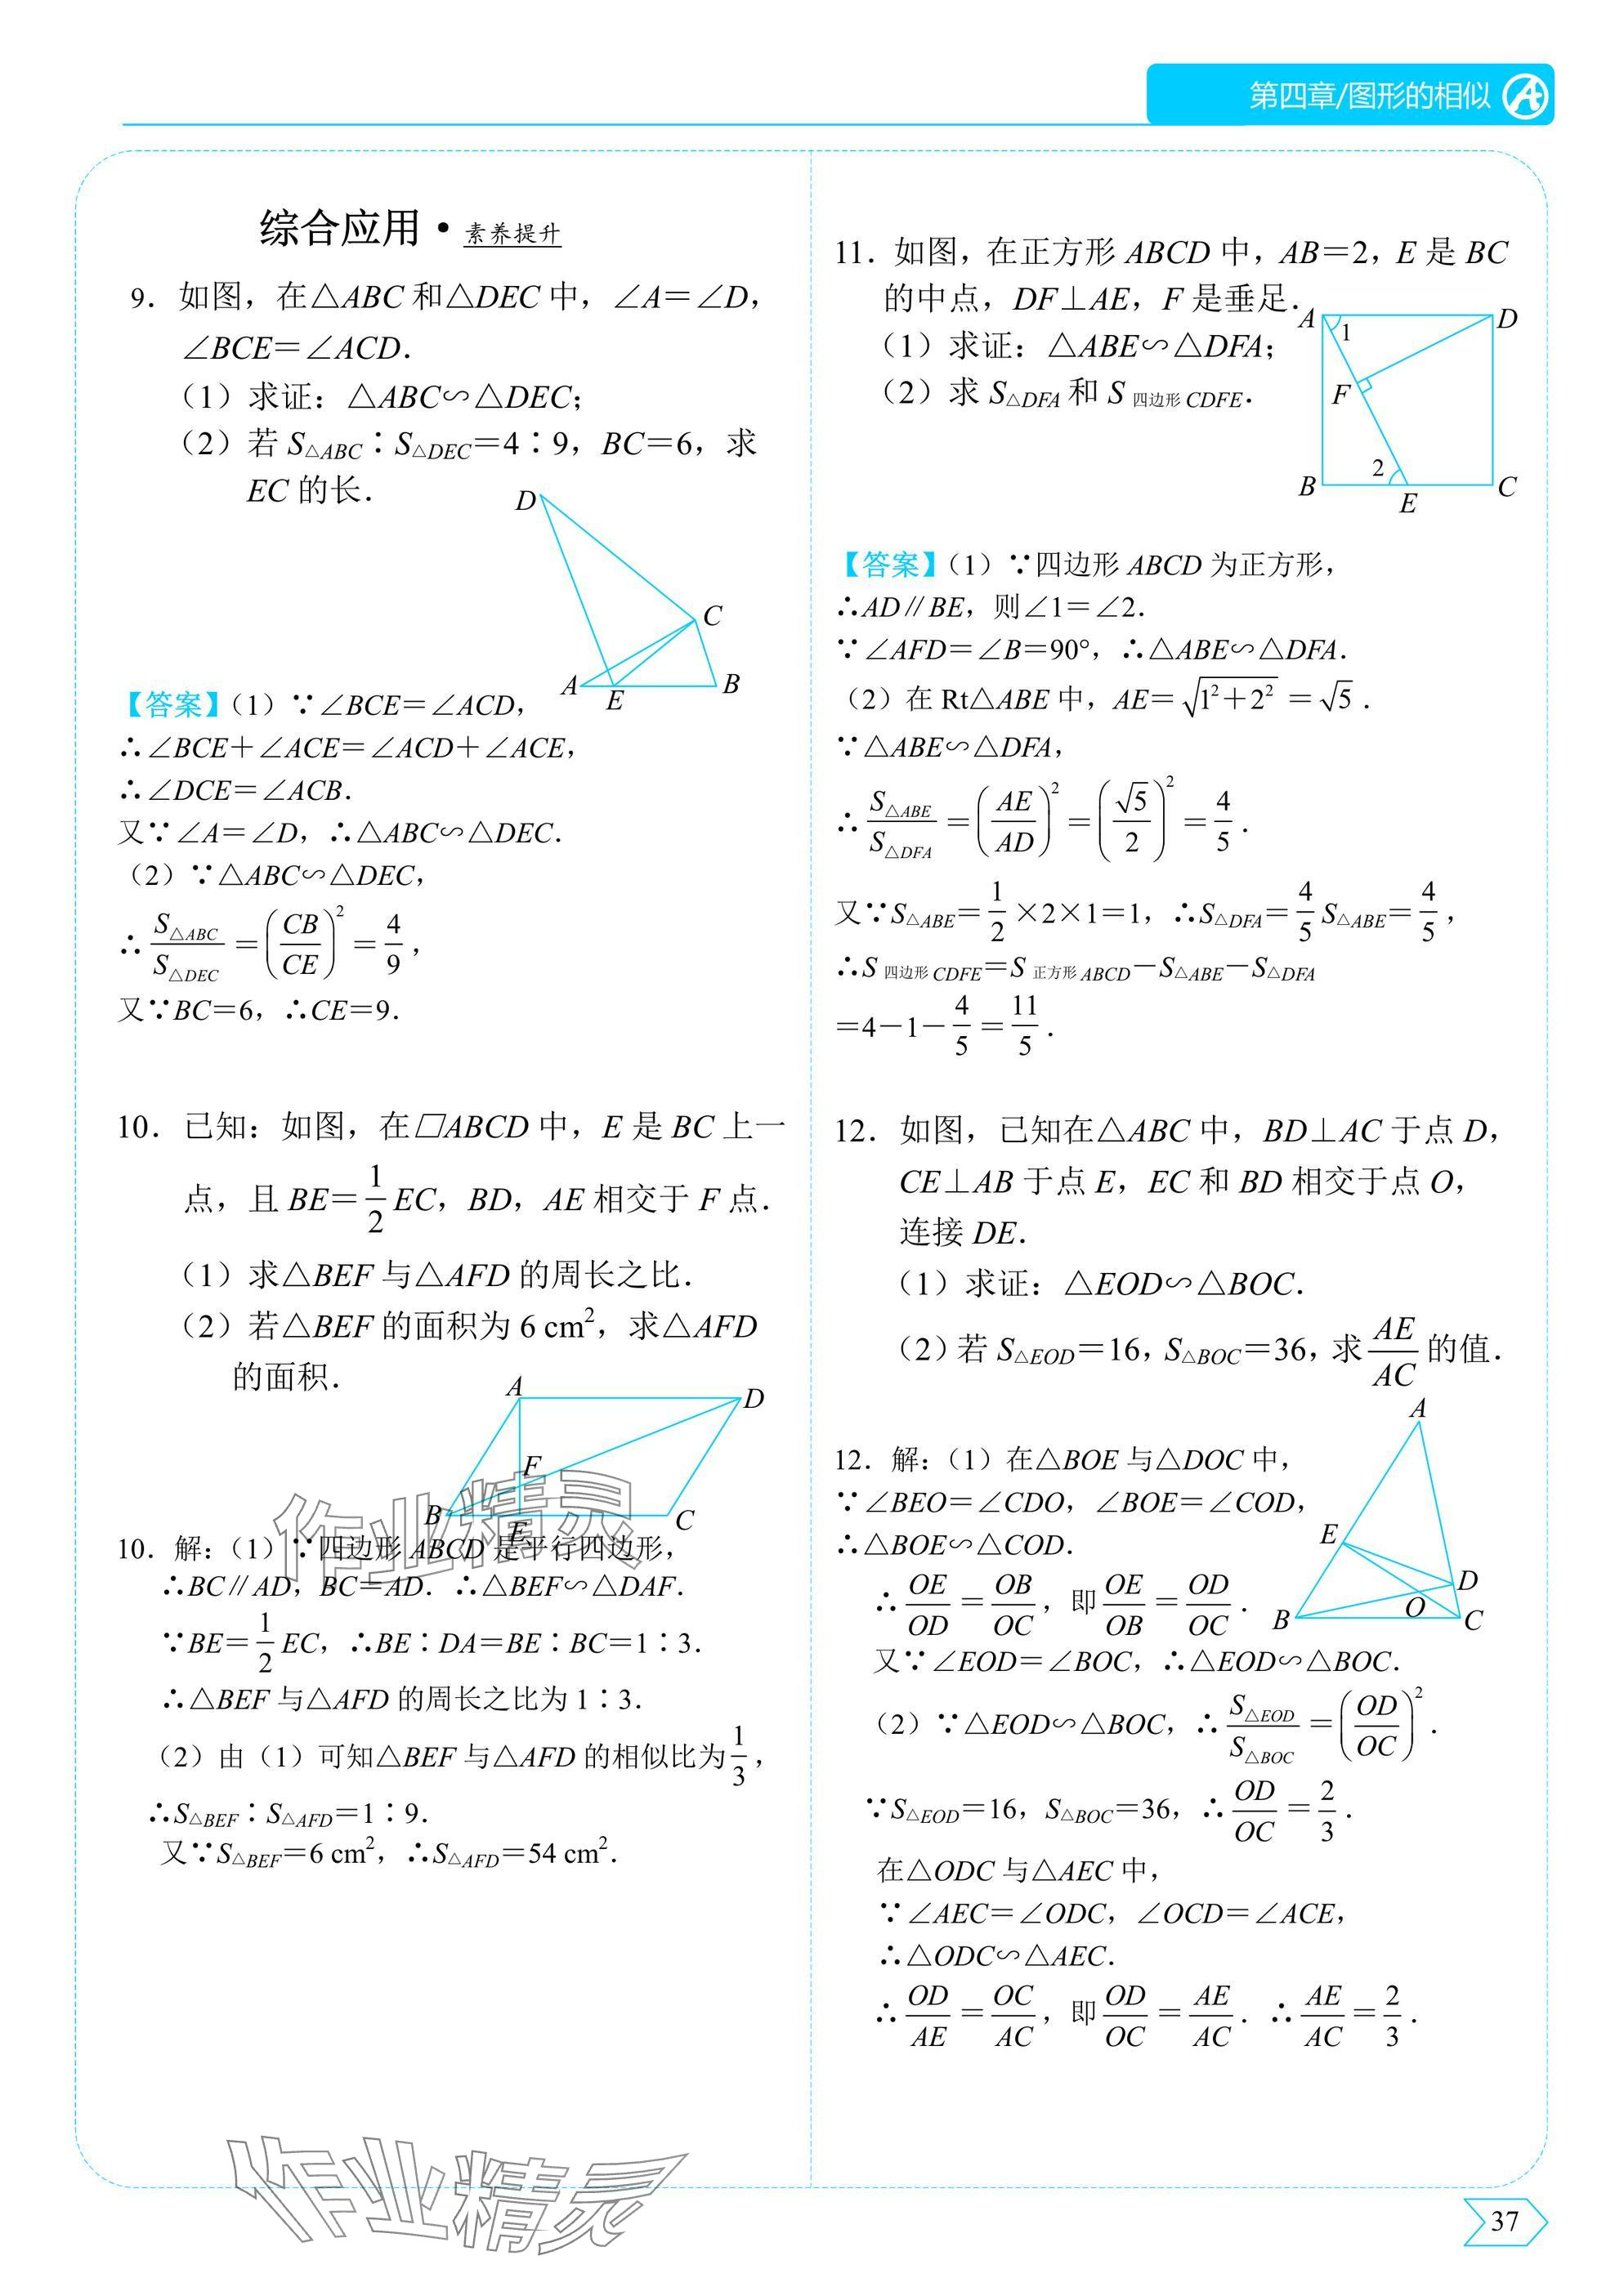 第四章/图形的相似
综合应用·素养提升
9. 如图，在△ABC 和△DEC 中，∠A＝∠D，
∠BCE＝∠ACD．
（1）求证：△ABC∽△DEC；
（2）若 S△ABC∶S△DEC＝4∶9，BC＝6，求
EC 的长．
D
C
A
E
B
【答案】（1）∵∠BCE＝∠ACD，
∴∠BCE＋∠ACE＝∠ACD＋∠ACE，
∴∠DCE＝∠ACB．
又∵∠A＝∠D，∴△ABC∽△DEC．
（2）∵△ABC∽△DEC，
∴S△ABC/S△DEC＝(CB/CE)²＝4/9，
又∵BC＝6，∴CE＝9．
10. 已知：如图，在□ABCD 中，E 是 BC 上一
点，且 BE＝1/2 EC，BD，AE 相交于 F 点．
（1）求△BEF 与△AFD 的周长之比．
（2）若△BEF 的面积为 6 cm²，求△AFD
的面积．
A
D
F
B
E
C
10. 解：（1）∵四边形 ABCD 是平行四边形，
∴BC∥AD，BC＝AD．∴△BEF∽△DAF．
∵BE＝1/2 EC，∴BE∶DA＝BE∶BC＝1∶3．
∴△BEF 与△AFD 的周长之比为 1∶3．
（2）由（1）可知△BEF 与△AFD 的相似比为1/3，
∴S△BEF∶S△AFD＝1∶9．
又∵S△BEF＝6 cm²，∴S△AFD＝54 cm²．
11. 如图，在正方形 ABCD 中，AB＝2，E 是 BC
的中点，DF⊥AE，F 是垂足．
（1）求证：△ABE∽△DFA；
（2）求 S△DFA 和 S 四边形 CDFE．
A
1
D
F
2
B
E
C
【答案】（1）∵四边形 ABCD 为正方形，
∴AD∥BE，则∠1＝∠2．
∵∠AFD＝∠B＝90°，∴△ABE∽△DFA．
（2）在 Rt△ABE 中，AE＝√(1²＋2²)＝√5．
∵△ABE∽△DFA，
∴S△ABE/S△DFA＝(AE/AD)²＝(√5/2)²＝4/5．
又∵S△ABE＝1/2×2×1＝1，∴S△DFA＝4/5 S△ABE＝4/5，
∴S 四边形 CDFE＝S 正方形 ABCD－S△ABE－S△DFA
＝4－1－4/5＝11/5．
12. 如图，已知在△ABC 中，BD⊥AC 于点 D，
CE⊥AB 于点 E，EC 和 BD 相交于点 O，
连接 DE．
（1）求证：△EOD∽△BOC．
（2）若 S△EOD＝16，S△BOC＝36，求AE/AC的值．
A
E
D
O
B
C
12. 解：（1）在△BOE 与△DOC 中，
∵∠BEO＝∠CDO，∠BOE＝∠COD，
∴△BOE∽△COD．
∴OE/OD＝OB/OC，即OE/OB＝OD/OC．
又∵∠EOD＝∠BOC，∴△EOD∽△BOC．
（2）∵△EOD∽△BOC，∴S△EOD/S△BOC＝(OD/OC)²．
∵S△EOD＝16，S△BOC＝36，∴OD/OC＝2/3．
在△ODC 与△AEC 中，
∵∠AEC＝∠ODC，∠OCD＝∠ACE，
∴△ODC∽△AEC．
∴OD/AE＝OC/AC，即OD/OC＝AE/AC．∴AE/AC＝2/3．
作业精灵
作业精灵
37